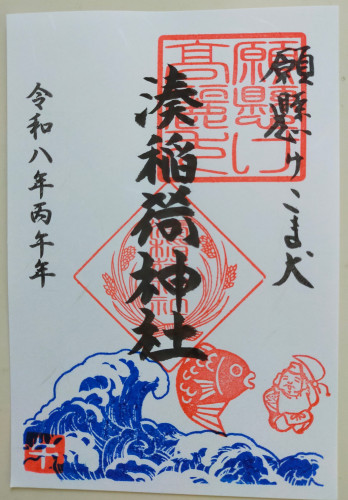 願懸けこま犬
願懸け
高麗犬
湊稲荷神社
令和八年丙午年
午